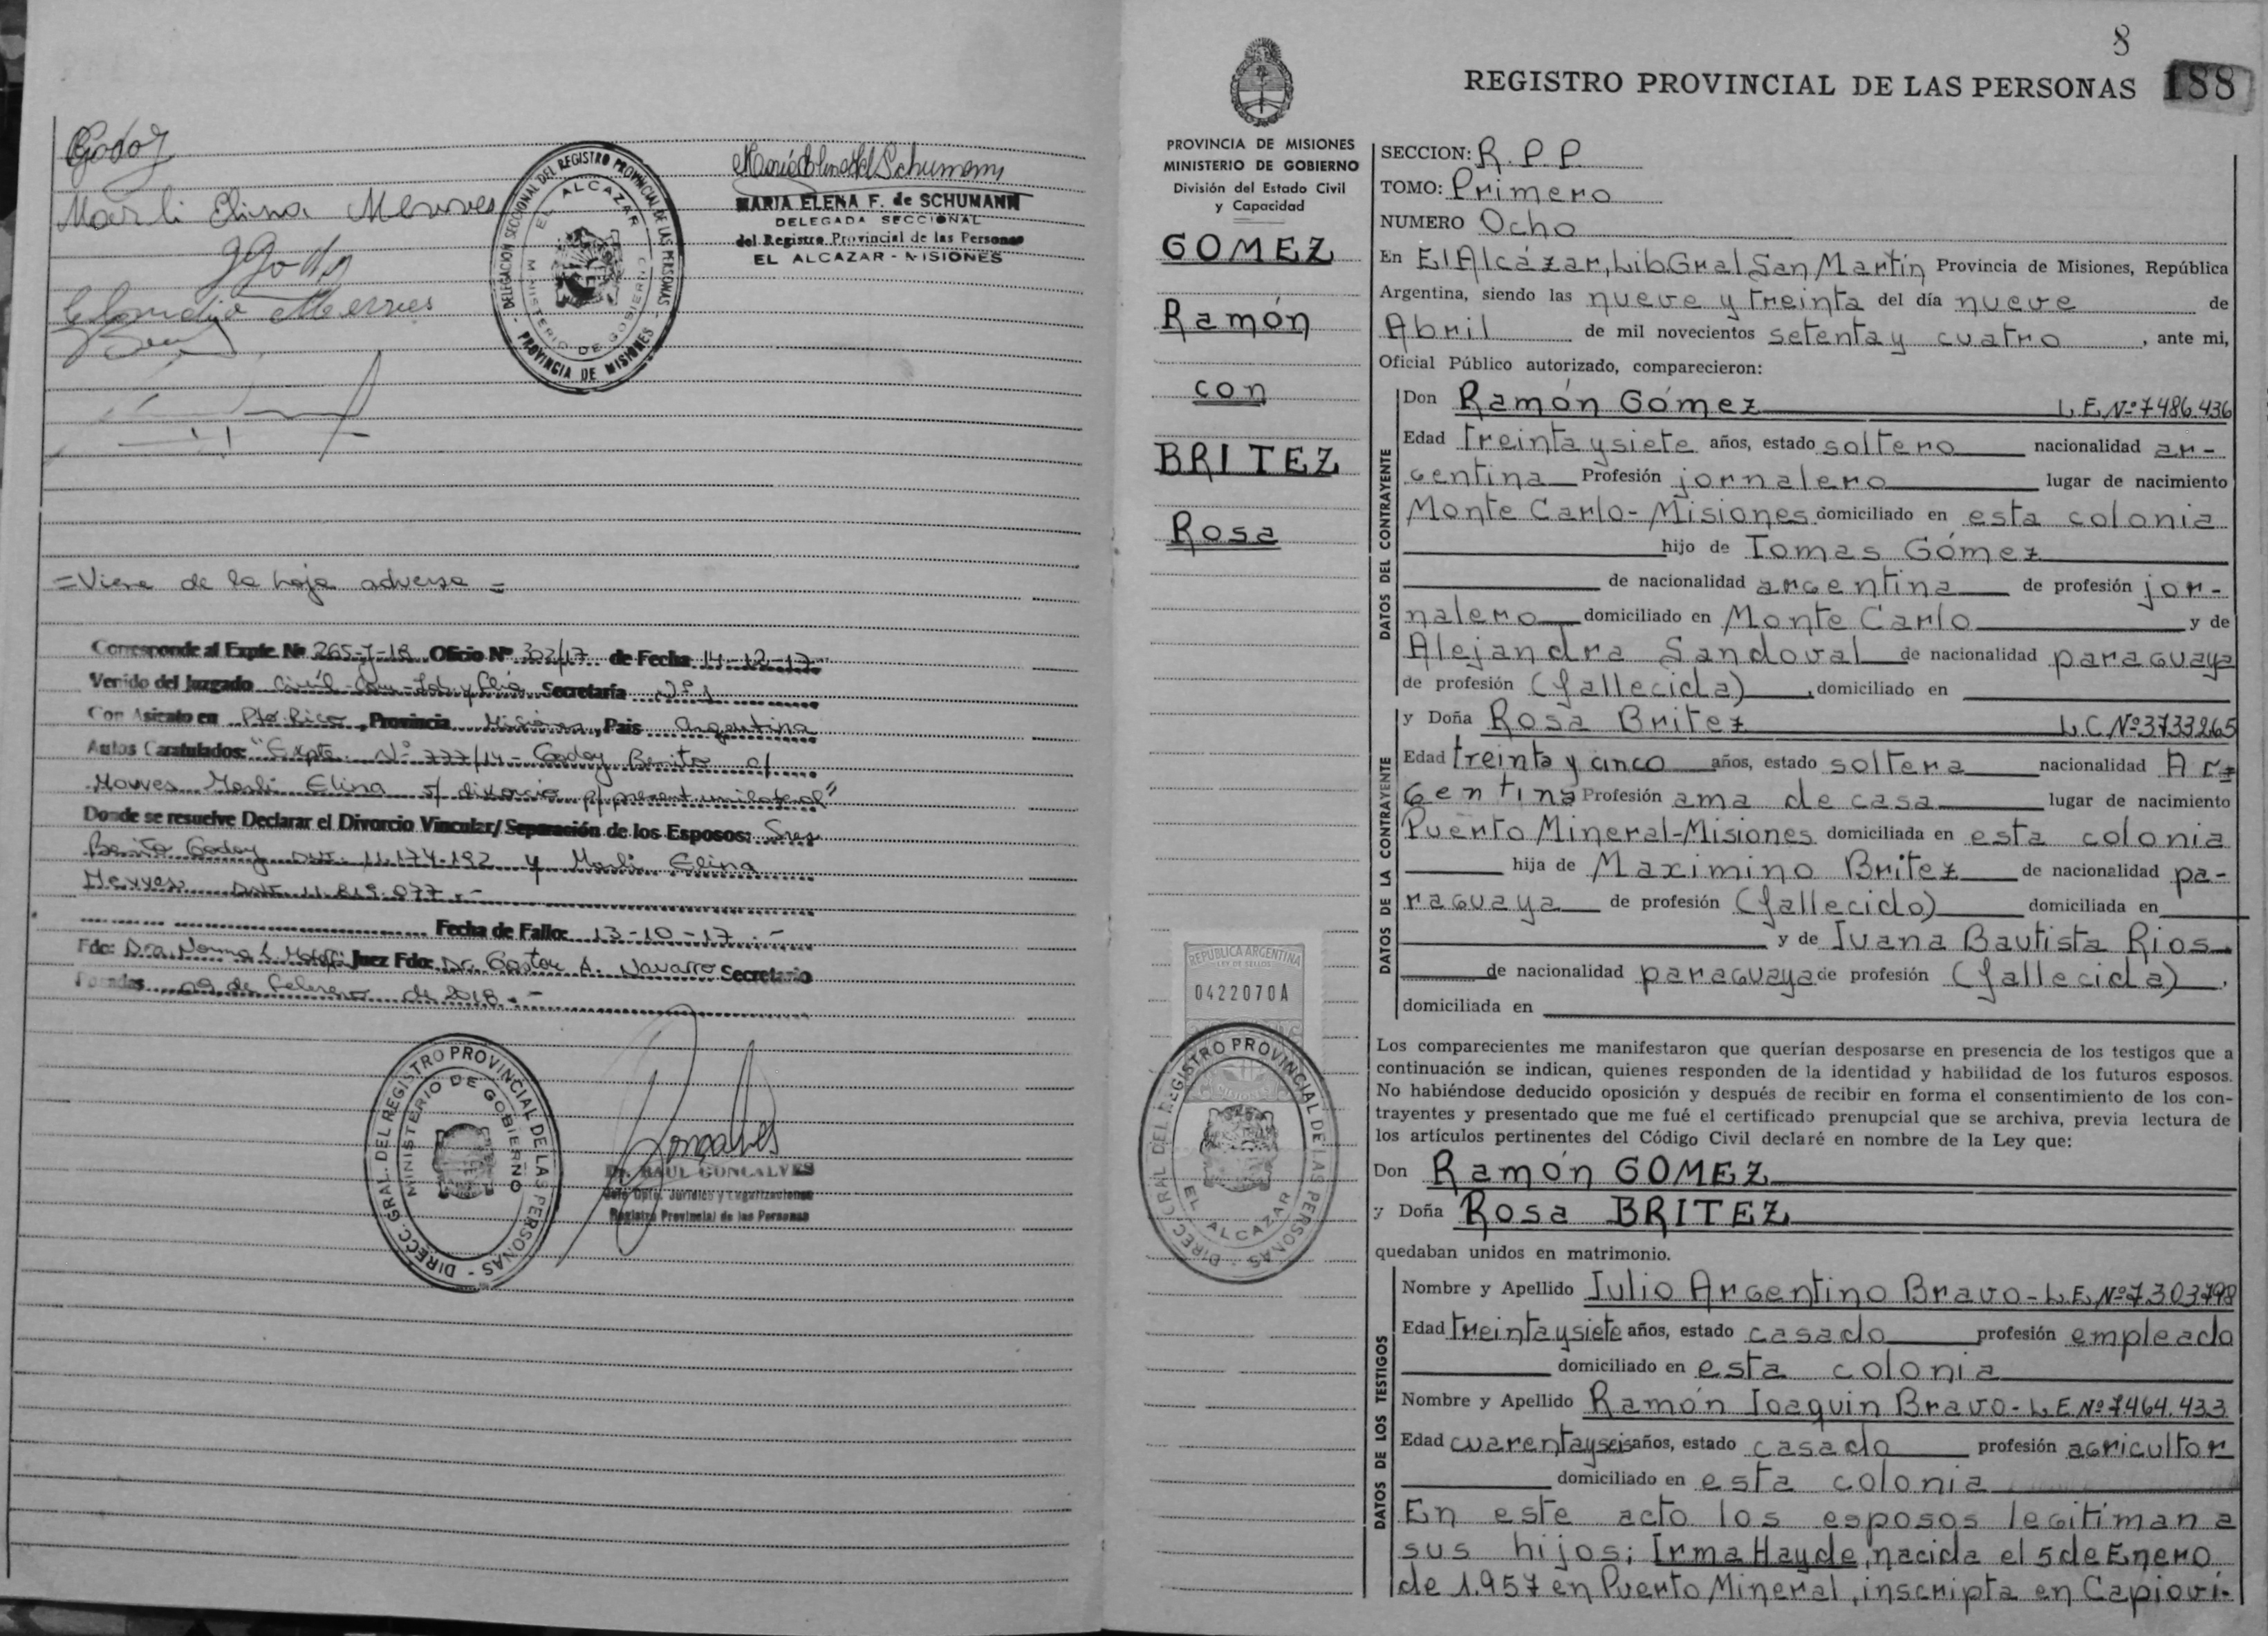 Godoy
Marli Elina Mewes
Godoy
Claudio Mewes
DELEGACION SECCIONAL DEL REGISTRO PROVINCIAL DE LAS PERSONAS - PROVINCIA DE MISIONES -
EL ALCAZAR
MINISTERIO DE GOBIERNO
MARIA ELENA F. de SCHUMANN
DELEGADA SECCIONAL
del Registro Provincial de las Personas
EL ALCAZAR - MISIONES
= Viene de la hoja adversa =
Corresponde al Expte. Nº 265-J-18 Oficio Nº 302/17 de Fecha 14-12-17
Venido del Juzgado Civil-Com-Lab y Flia Secretaría Nº 1
Con Asiento en Pto. Rico, Provincia Misiones, Pais Argentina
Autos Caratulados: "Expte. Nº 777/14 - Godoy Benito c/
Mewes Marli Elina s/ divorcio p/ present. unilateral"
Donde se resuelve Declarar el Divorcio Vincular/Separación de los Esposos: Sres
Benito Godoy DNI. 11.174.192 y Marli Elina
Mewes DNI 11.819.077.-
Fecha de Fallo: 13-10-17.-
Fdo: Dra. Norma L. Juez Fdo: Dr. Gastón A. Navarro Secretario
Posadas 09 de febrero de 2018.-
DIRECC. GRAL. DEL REGISTRO PROVINCIAL DE LAS PERSONAS -
MINISTERIO DE GOBIERNO
Goncalves
Dr. RAUL GONCALVES
Jefe Dpto. Jurídico y Legalizaciones
Registro Provincial de las Personas
8
REGISTRO PROVINCIAL DE LAS PERSONAS 188
PROVINCIA DE MISIONES
MINISTERIO DE GOBIERNO
División del Estado Civil
y Capacidad
GOMEZ
Ramón
con
BRITEZ
Rosa
REPUBLICA ARGENTINA
LEY DE SELLOS
0422070A
MISIONES
DIRECC. GRAL. DEL REGISTRO PROVINCIAL DE LAS PERSONAS -
EL ALCAZAR
SECCION: R.P.P
TOMO: Primero
NUMERO Ocho
En El Alcázar, Lib Gral San Martín Provincia de Misiones, República
Argentina, siendo las nueve y treinta del día nueve de
Abril de mil novecientos setenta y cuatro, ante mi,
Oficial Público autorizado, comparecieron:
DATOS DEL CONTRAYENTE
Don Ramón Gómez L.E.Nº 7486.436
Edad treinta y siete años, estado soltero nacionalidad ar-
gentina Profesión jornalero lugar de nacimiento
Monte Carlo-Misiones domiciliado en esta colonia
hijo de Tomas Gómez
de nacionalidad argentina de profesión jor-
nalero domiciliado en Monte Carlo y de
Alejandra Sandoval de nacionalidad paraguaya
de profesión (fallecida), domiciliado en
DATOS DE LA CONTRAYENTE
y Doña Rosa Britez L.C Nº 3733265
Edad treinta y cinco años, estado soltera nacionalidad Ar=
gentina Profesión ama de casa lugar de nacimiento
Puerto Mineral-Misiones domiciliada en esta colonia
hija de Maximino Britez de nacionalidad pa-
raguaya de profesión (fallecido) domiciliada en
y de Juana Bautista Rios
de nacionalidad paraguaya de profesión (fallecida).
domiciliada en
Los comparecientes me manifestaron que querían desposarse en presencia de los testigos que a
continuación se indican, quienes responden de la identidad y habilidad de los futuros esposos.
No habiéndose deducido oposición y después de recibir en forma el consentimiento de los con-
trayentes y presentado que me fué el certificado prenupcial que se archiva, previa lectura de
los artículos pertinentes del Código Civil declaré en nombre de la Ley que:
Don Ramón GOMEZ
y Doña Rosa BRITEZ
quedaban unidos en matrimonio.
DATOS DE LOS TESTIGOS
Nombre y Apellido Julio Argentino Bravo - L.E.Nº 7303798
Edad treinta y siete años, estado casado profesión empleado
domiciliado en esta colonia
Nombre y Apellido Ramón Joaquin Bravo - L.E Nº 7464.433
Edad cuarenta y seis años, estado casado profesión agricultor
domiciliado en esta colonia
En este acto los esposos legitiman a
sus hijos; Irma Hayde, nacida el 5 de Enero
de 1.957 en Puerto Mineral, inscripta en Capioví-